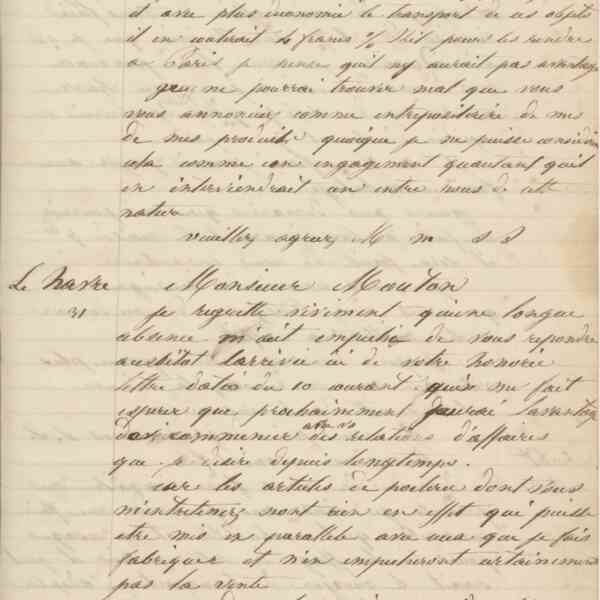 et avec plus économie le transport de ces objets
il en coutrait 4 francs % Kil pour les rendre
a Paris je pense qu'il ny aurait pas avantage
je ne pourrai trouver mal que vous
vous annonciez comme entrepositaire de mes
de mes produits quoique je ne puisse considérer
cela comme un engagement quautant quil
en interviendrait un entre nous de cette
nature
veuillez agréez M m s s
Le havre Monsieur Mouton
31 je regrette vivement qu'une longue
absence m'ait empeché de vous repondre
aussitot l'arrivée ici de votre honorée
lettre datée du 10 courant qui me fait
esperer que prochainement jaurai lavantage
de commencer avec vs des relations d'affaires
que je désire depuis longtemps.
car les articles de poterie dont vous
m'entretenez nont rien en effet qui puisse
etre mis en parallele avec ceux que je fais
fabriquer et n'en empecheront certainement
pas la vente